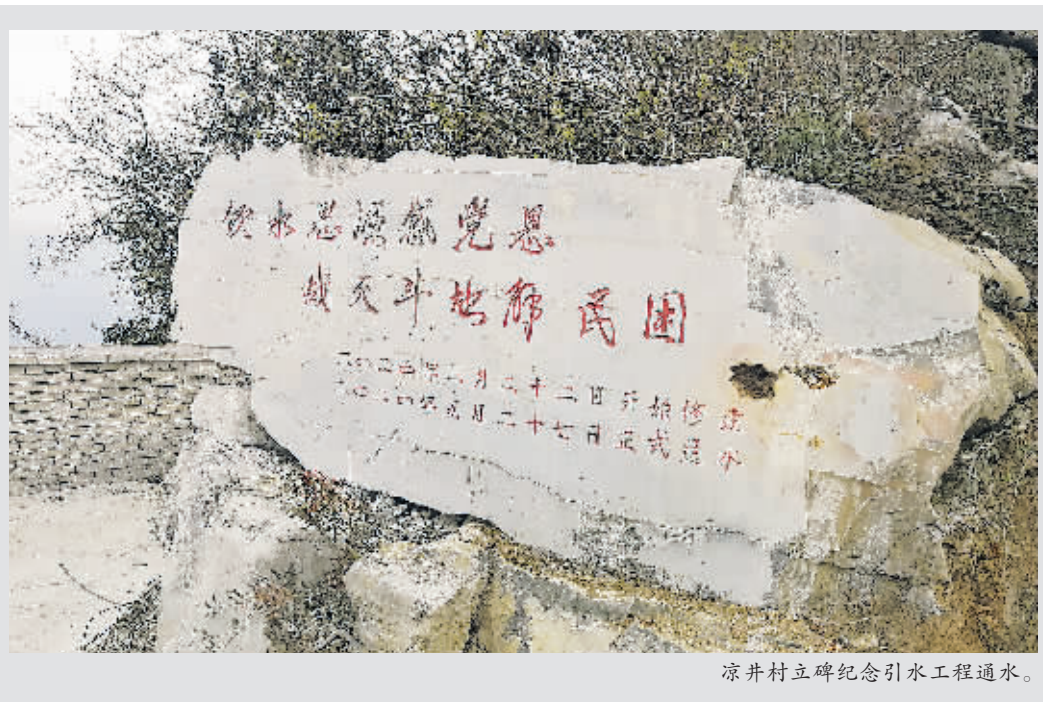 饮水思源感党恩
战天斗地解民困
二〇二四年 月二十二日开始修渠
二〇二四年 月二十七日正式通水
凉井村立碑纪念引水工程通水。